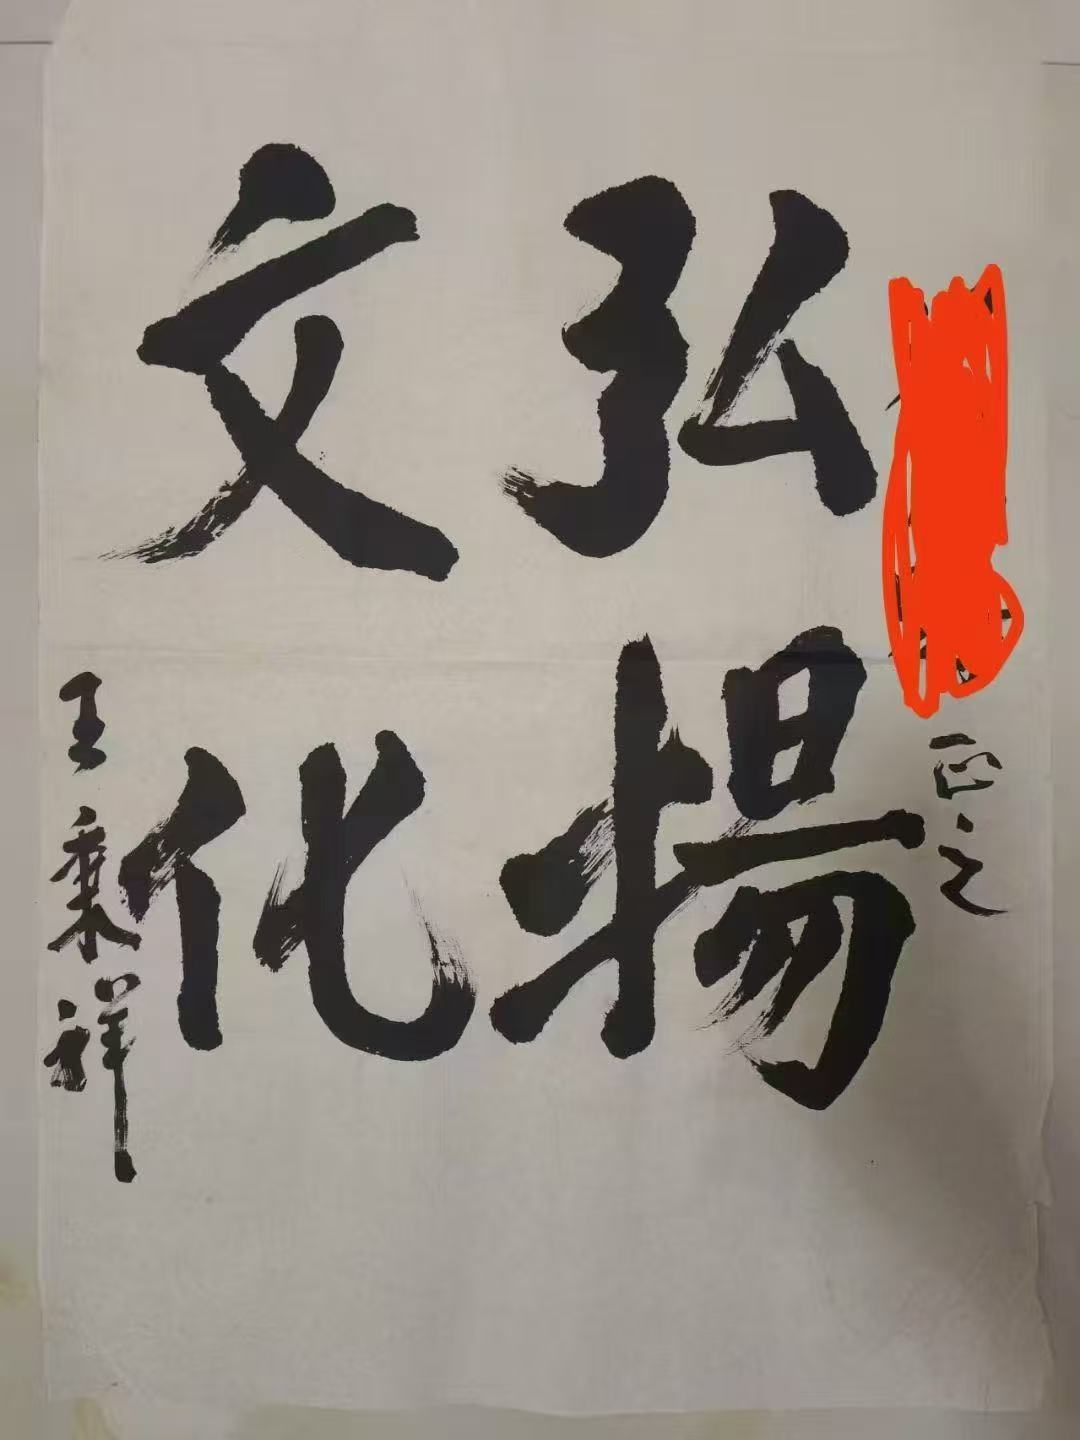 正之
弘揚
文化
王秉祥